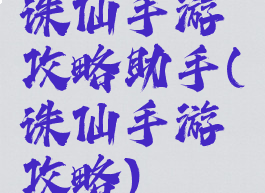 诛仙手游
攻略助手(
诛仙手游
攻略)